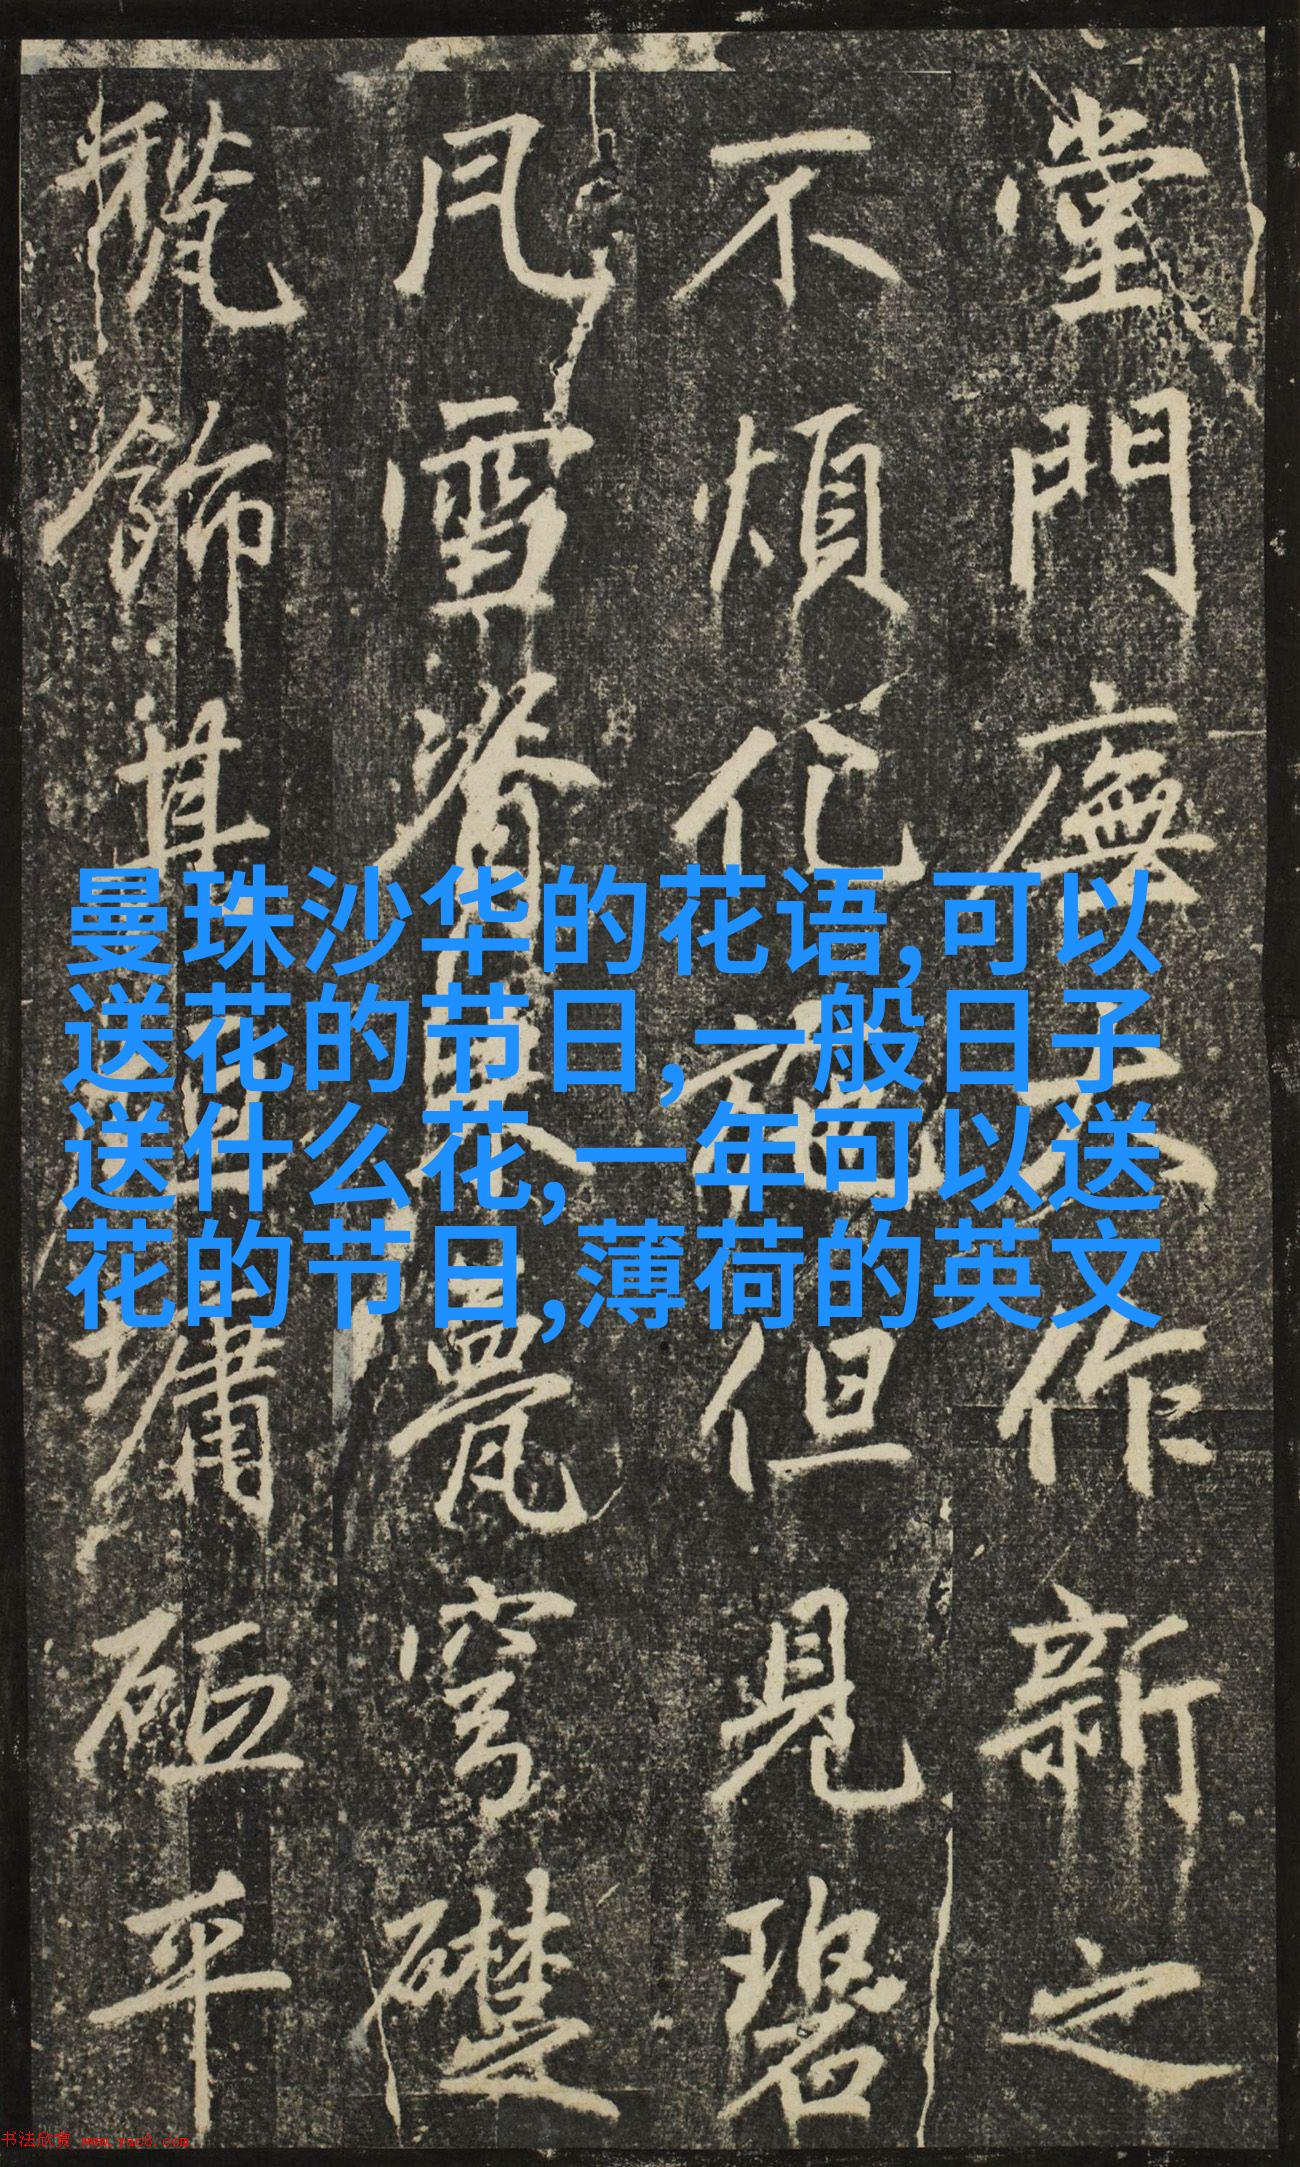 堂門廡作新之
不煩化但見碧
雪脊甍穹礎
飾其垣墉砥平
曼珠沙华的花语,可以
送花的节日,一般日子
送什么花,一年可以送
花的节日,薄荷的英文
书法欣赏 www.yac8.com